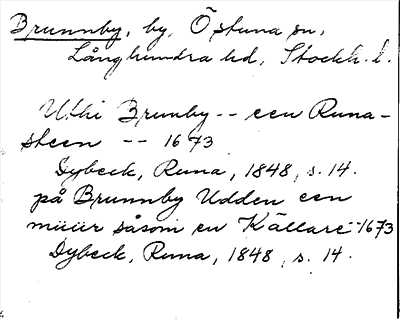 Brunnby, by, Östuna sn,
Långhundra hd, Stockh. l.
Uthi Brunby -- een Runa-
steen -- 1673
Dybeck, Runa, 1848, s. 14.
på Brunnby Udden een
müür såsom en Källare - 1673
Dybeck, Runa, 1848, s. 14.